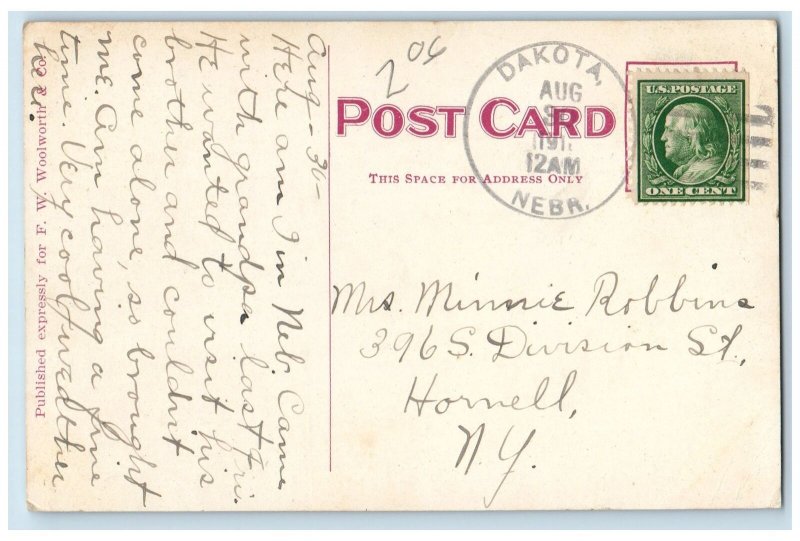 Aug - 30 -
Here am I in Neb. Came
with grandpa last Fri.
He wanted to visit his
brother and couldnt
come alone, so brought
me. Am having a fine
time. Very cool weather
here.
Published expressly for F. W. Woolworth & Co.
2 06
POST CARD
THIS SPACE FOR ADDRESS ONLY
DAKOTA,
AUG
191
12AM
NEBR.
U.S. POSTAGE
ONE CENT
Mrs. Minnie Robbins
396 S. Division St,
Hornell,
N.Y.